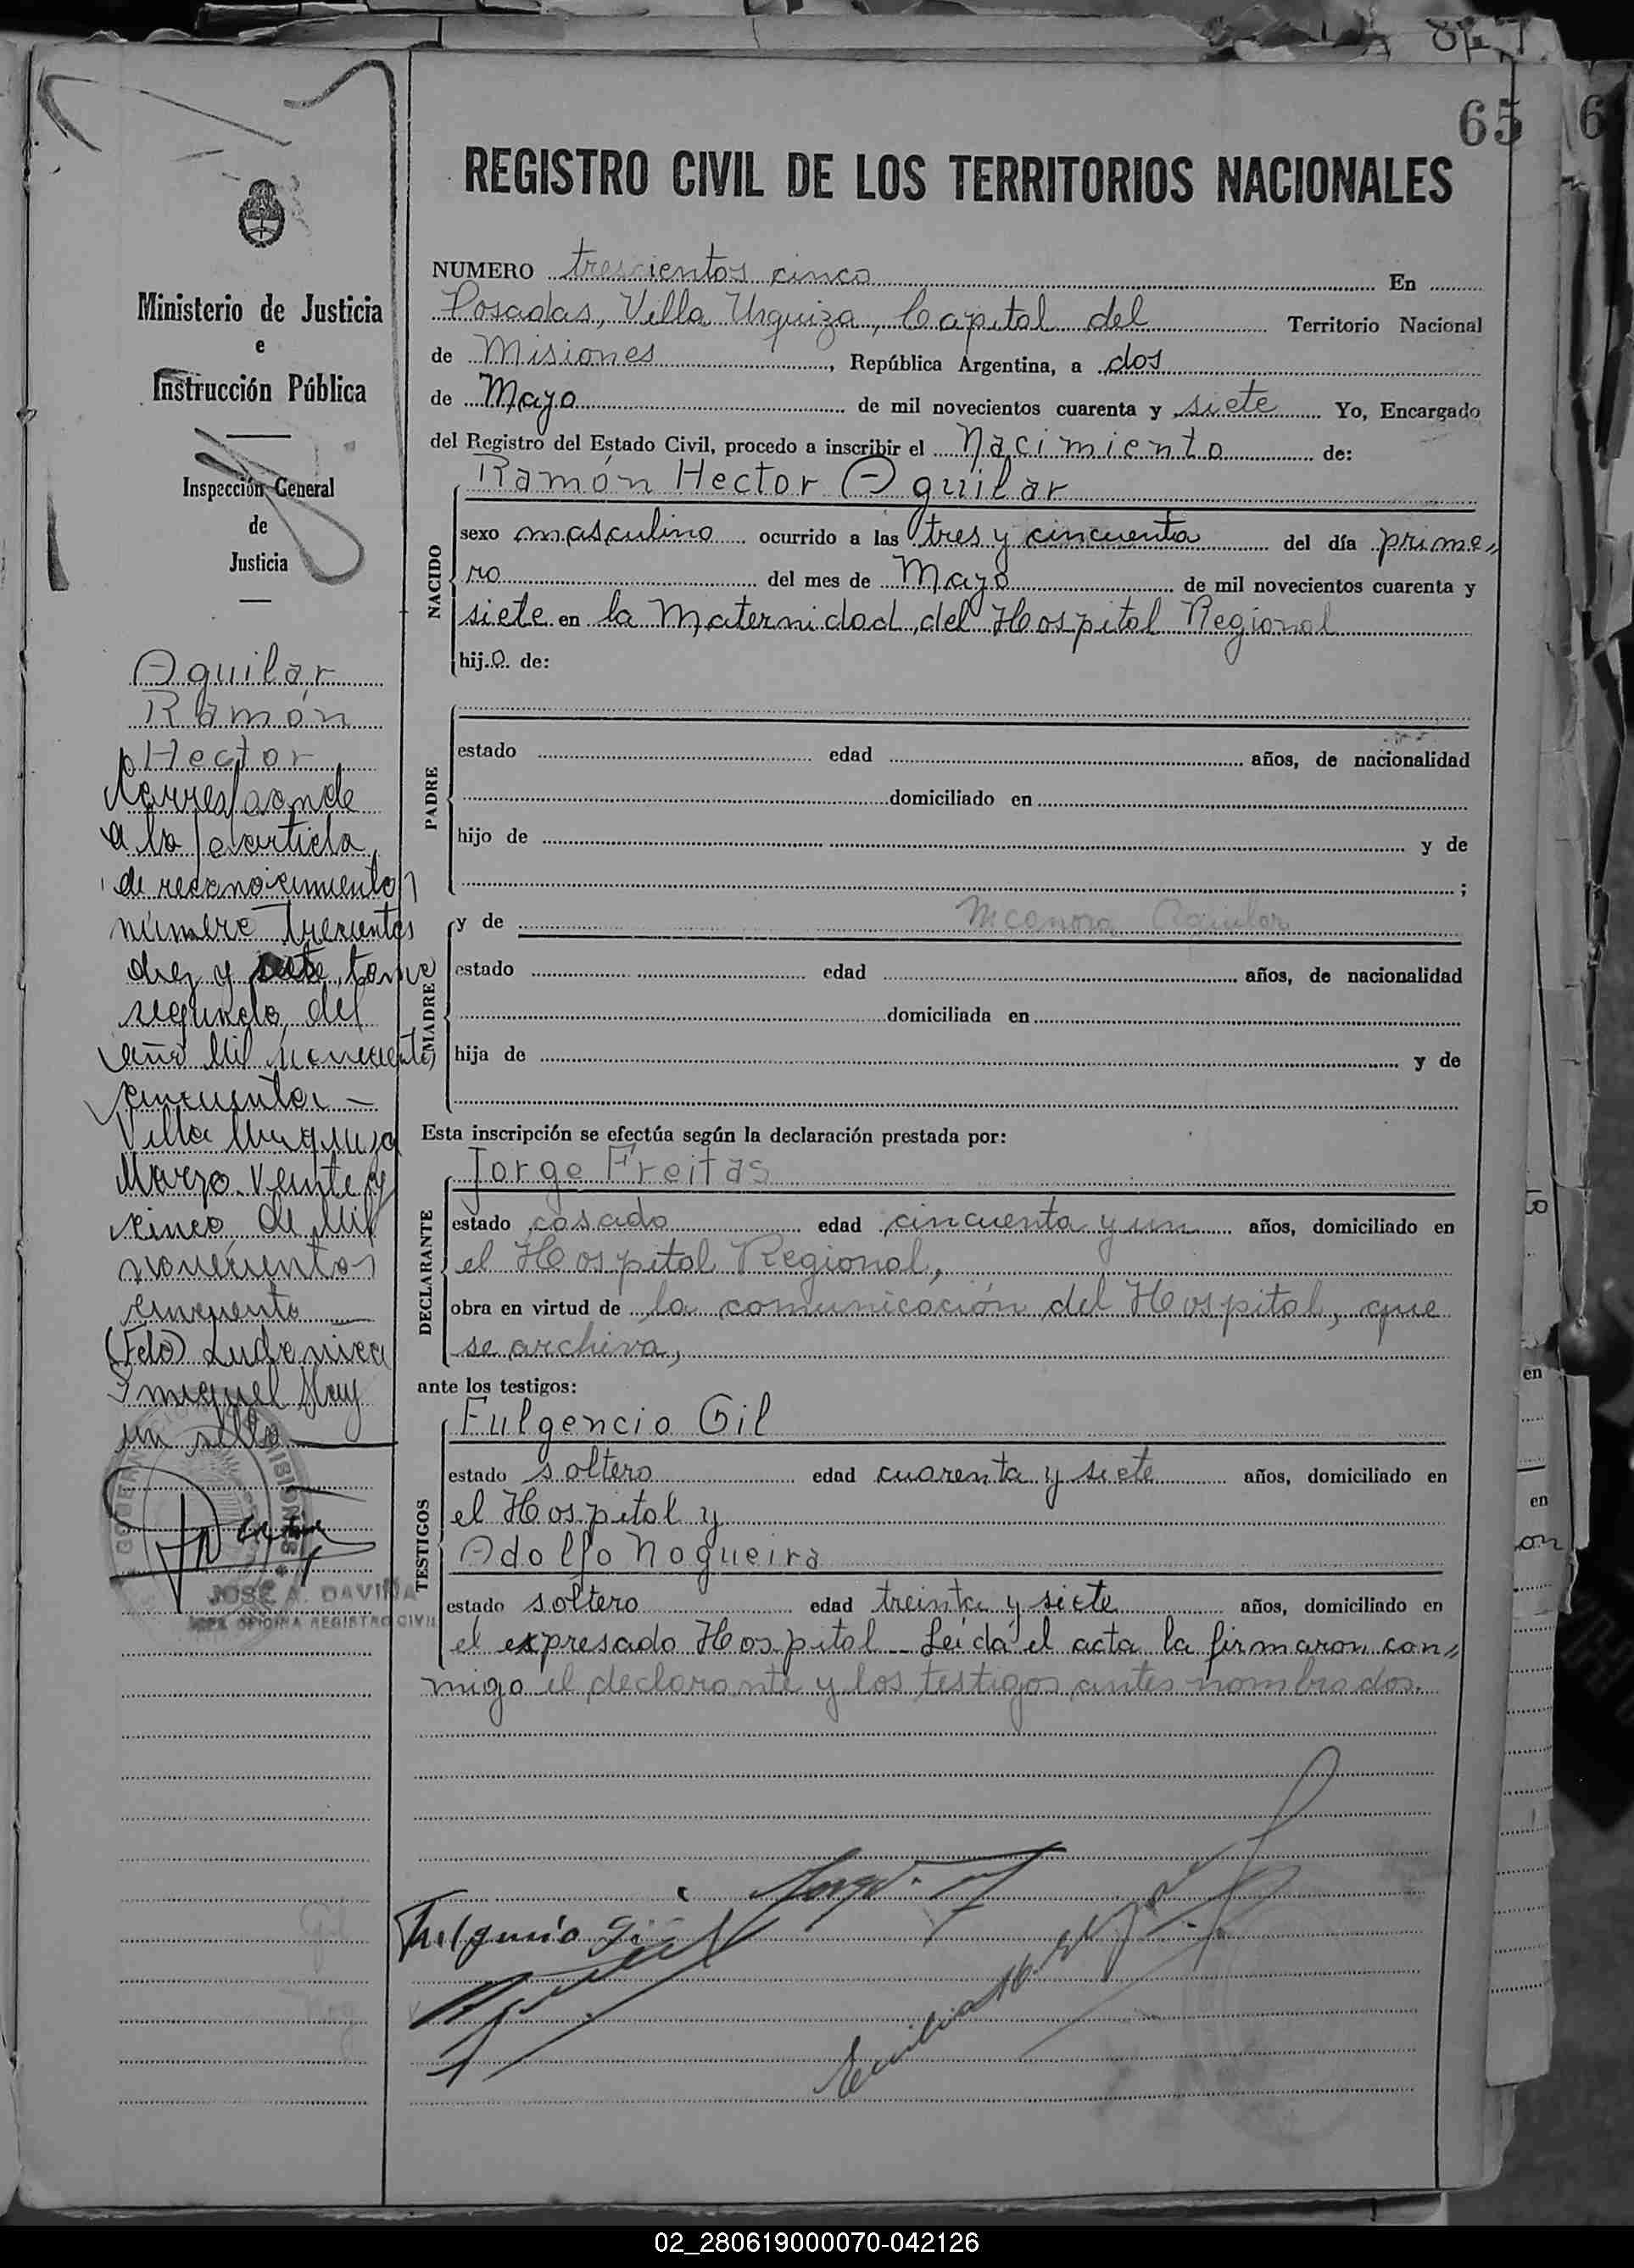 65
REGISTRO CIVIL DE LOS TERRITORIOS NACIONALES
Ministerio de Justicia
e
Instrucción Pública
Inspección General
de
Justicia
Aguilar
Ramón
Hector
Corresponde
a la partida
de reconocimiento
número trescientos
diez y siete, tomo
segundo, del
año Mil novecientos
cincuenta —
Villa Urquiza
Marzo veinte y
cinco de Mil
novecientos
cincuenta
(Fdo) Ludovica
Hay
un sello
JOSE A. DAVIÑA
JEFE OFICINA REGISTRO CIVIL
NUMERO trescientos cinco En
Posadas, Villa Urquiza, Capital del Territorio Nacional
de Misiones, República Argentina, a dos
de Mayo de mil novecientos cuarenta y siete Yo, Encargado
del Registro del Estado Civil, procedo a inscribir el Nacimiento de:
Ramón Hector Aguilar
NACIDO
sexo masculino ocurrido a las tres y cincuenta del día prime„
ro del mes de Mayo de mil novecientos cuarenta y
siete en la Maternidad del Hospital Regional
hijo de:
PADRE
estado edad años, de nacionalidad
domiciliado en
hijo de y de
;
MADRE
y de Nicanora Aguilar
estado edad años, de nacionalidad
domiciliada en
hija de y de
Esta inscripción se efectúa según la declaración prestada por:
Jorge Freitas
DECLARANTE
estado casado edad cincuenta y un años, domiciliado en
el Hospital Regional,
obra en virtud de la comunicación del Hospital, que
se archiva,
ante los testigos:
TESTIGOS
Fulgencio Gil
estado soltero edad cuarenta y siete años, domiciliado en
el Hospital y
Adolfo Nogueira
estado soltero edad treinta y siete años, domiciliado en
el expresado Hospital - Leída el acta la firmaron con„
migo el declarante y los testigos antes nombrados.
Fulgencio Gil
02_280619000070-042126